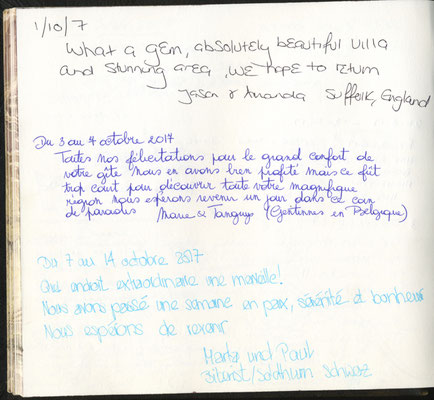 1/10/7
What a gem, absolutely beautiful villa
and stunning area, we hope to return
Jason & Amanda Suffolk, England
Du 3 au 7 octobre 2017
Toutes nos félicitations pour le grand confort de
votre gîte Nous en avons bien profité mais ce fût
trop court pour découvrir toute votre magnifique
région nous espérons revenir un jour dans ce coin
de paradis Marie & Tanguy (Gentinnes en Belgique)
Du 7 au 14 octobre 2017
Quel endroit extraordinaire une merveille!
Nous avons passé une semaine en paix, sérénité et bonheur
Nous espérons de revenir
und Paul
Biberist/Solothurn Schweiz